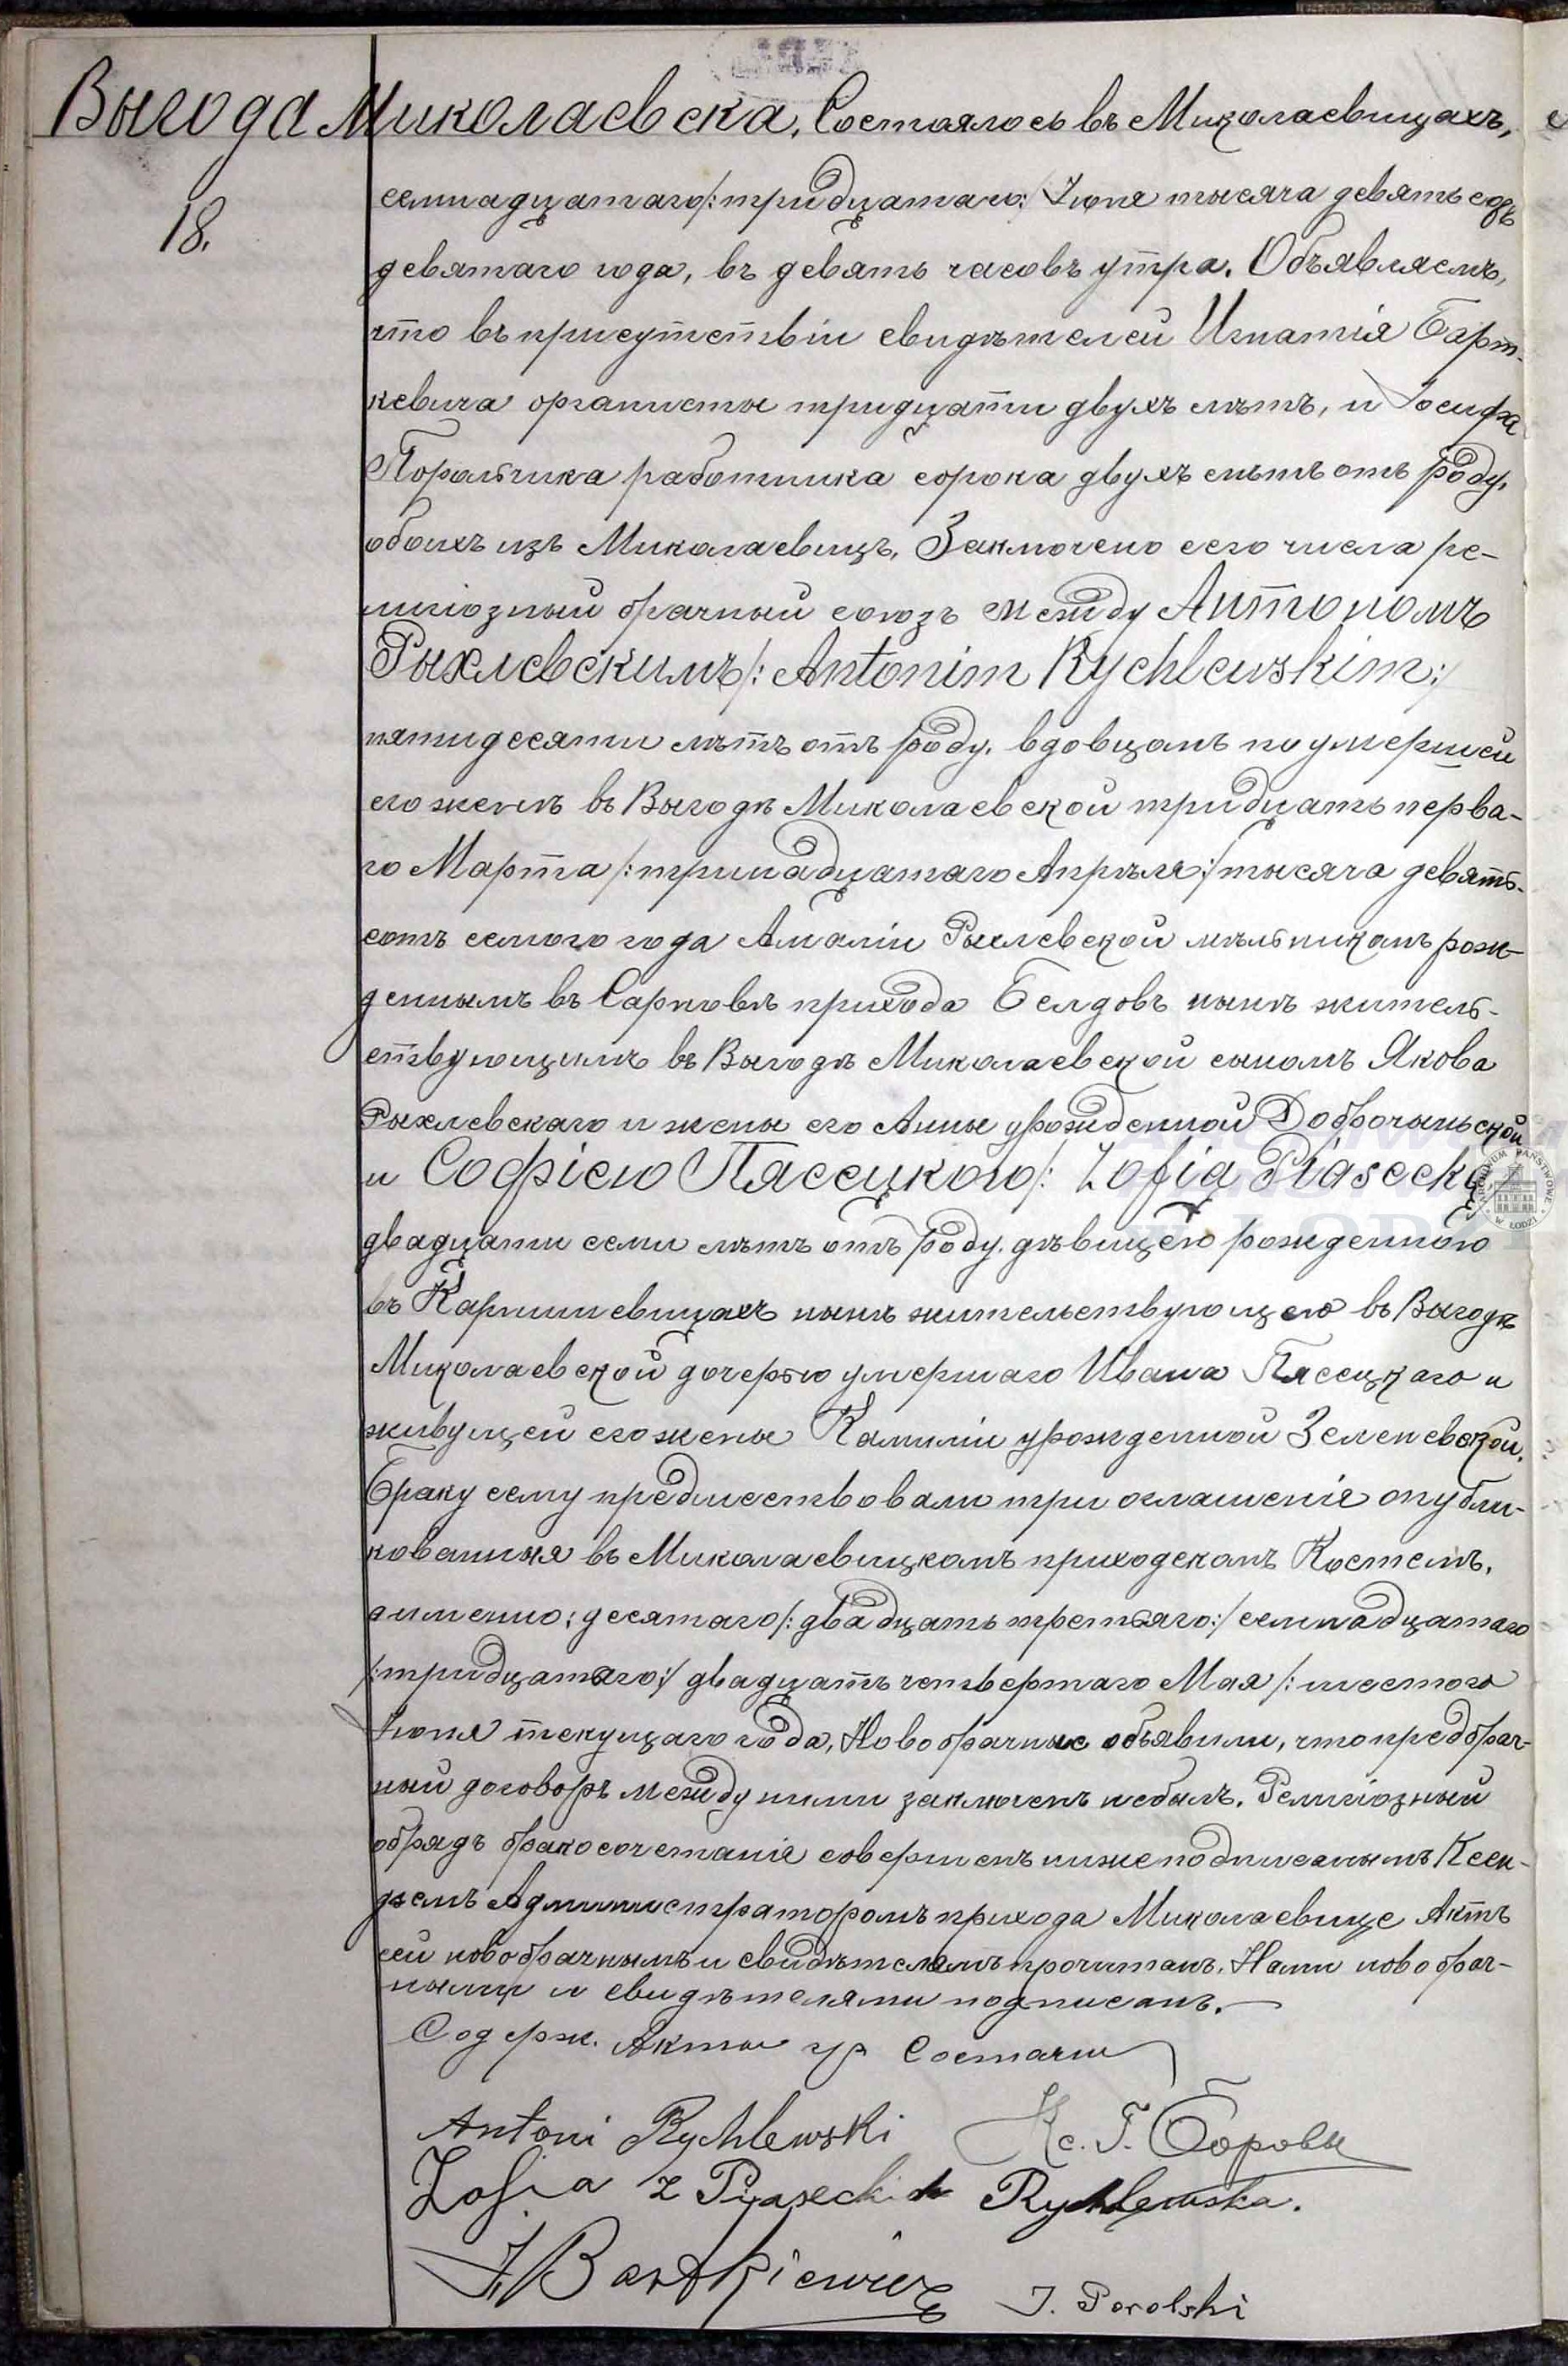 Выгода Миколаевска, Состоялось въ Миколаевицахъ,
18.
семнадцатаго /:тридцатаго:/ Іюня тысяча девятьсотъ
девятаго года, въ девять часовъ утра. Объявляемъ,
что въ присутствіи свидѣтелей Игнатія Барт-
кевича органисты тридцати двухъ лѣтъ, и Іосифа
Порольчика работника сорока двухъ лѣтъ отъ роду,
обоихъ изъ Миколаевицъ, Заключено сего числа ре-
лигіозный брачный союзъ между Антономъ
Рыхлевскимъ /: Antonim Rychlewskim:/
пятидесяти лѣтъ отъ роду, вдовцомъ по умершей
его женѣ въ Выгодѣ Миколаевской тридцать перва-
го Марта /:тринадцатаго Апрѣля:/ тысяча девять-
сотъ семого года Амаліи Рыхлевской мѣльникомъ рож-
деннымъ въ Сарновѣ прихода Белдовъ нынѣ житель-
ствующимъ въ Выгодѣ Миколаевской сыномъ Якова
Рыхлевскаго и жены его Анны урожденной Доброчинской
и Софіею Пясецкою /: Zofią Piasecką
двадцати семи лѣтъ отъ роду, дѣвицею рожденною
въ Карнишевицахъ нынѣ жительствующею въ Выгодѣ
Миколаевской дочерью умершаго Ивана Пясецкаго и
живущей его жены Камиліи урожденной Зеленевской.
Браку сему предшествовали три оглашенія опубли-
кованныя въ Миколаевицкомъ приходскомъ Костелѣ,
а именно: десятаго /:двадцать третьяго:/ семнадцатаго
/:тридцатаго:/ двадцать четвертаго Мая /:шестого
Іюня текущаго года, Новобрачные объявили, что предбрач-
ный договоръ между ними заключенъ небылъ. Религіозный
обрядъ бракосочетанія совершенъ нижеподписанымъ Ксен-
дземъ Администраторомъ прихода Миколаевице Актъ
сей новобрачнымъ и свидѣтелямъ прочитанъ, Нами новобрач-
ными и свидѣтелями подписанъ.—
Содерж. Акты гр Состаяни
Antoni Rychlewski Кс. Г. Боровы
Zofia z Pyaseckich Rychlewska.
I. Bartkiewicz J. Porolski
ARCHIWUM PAŃSTWOWE W ŁODZI